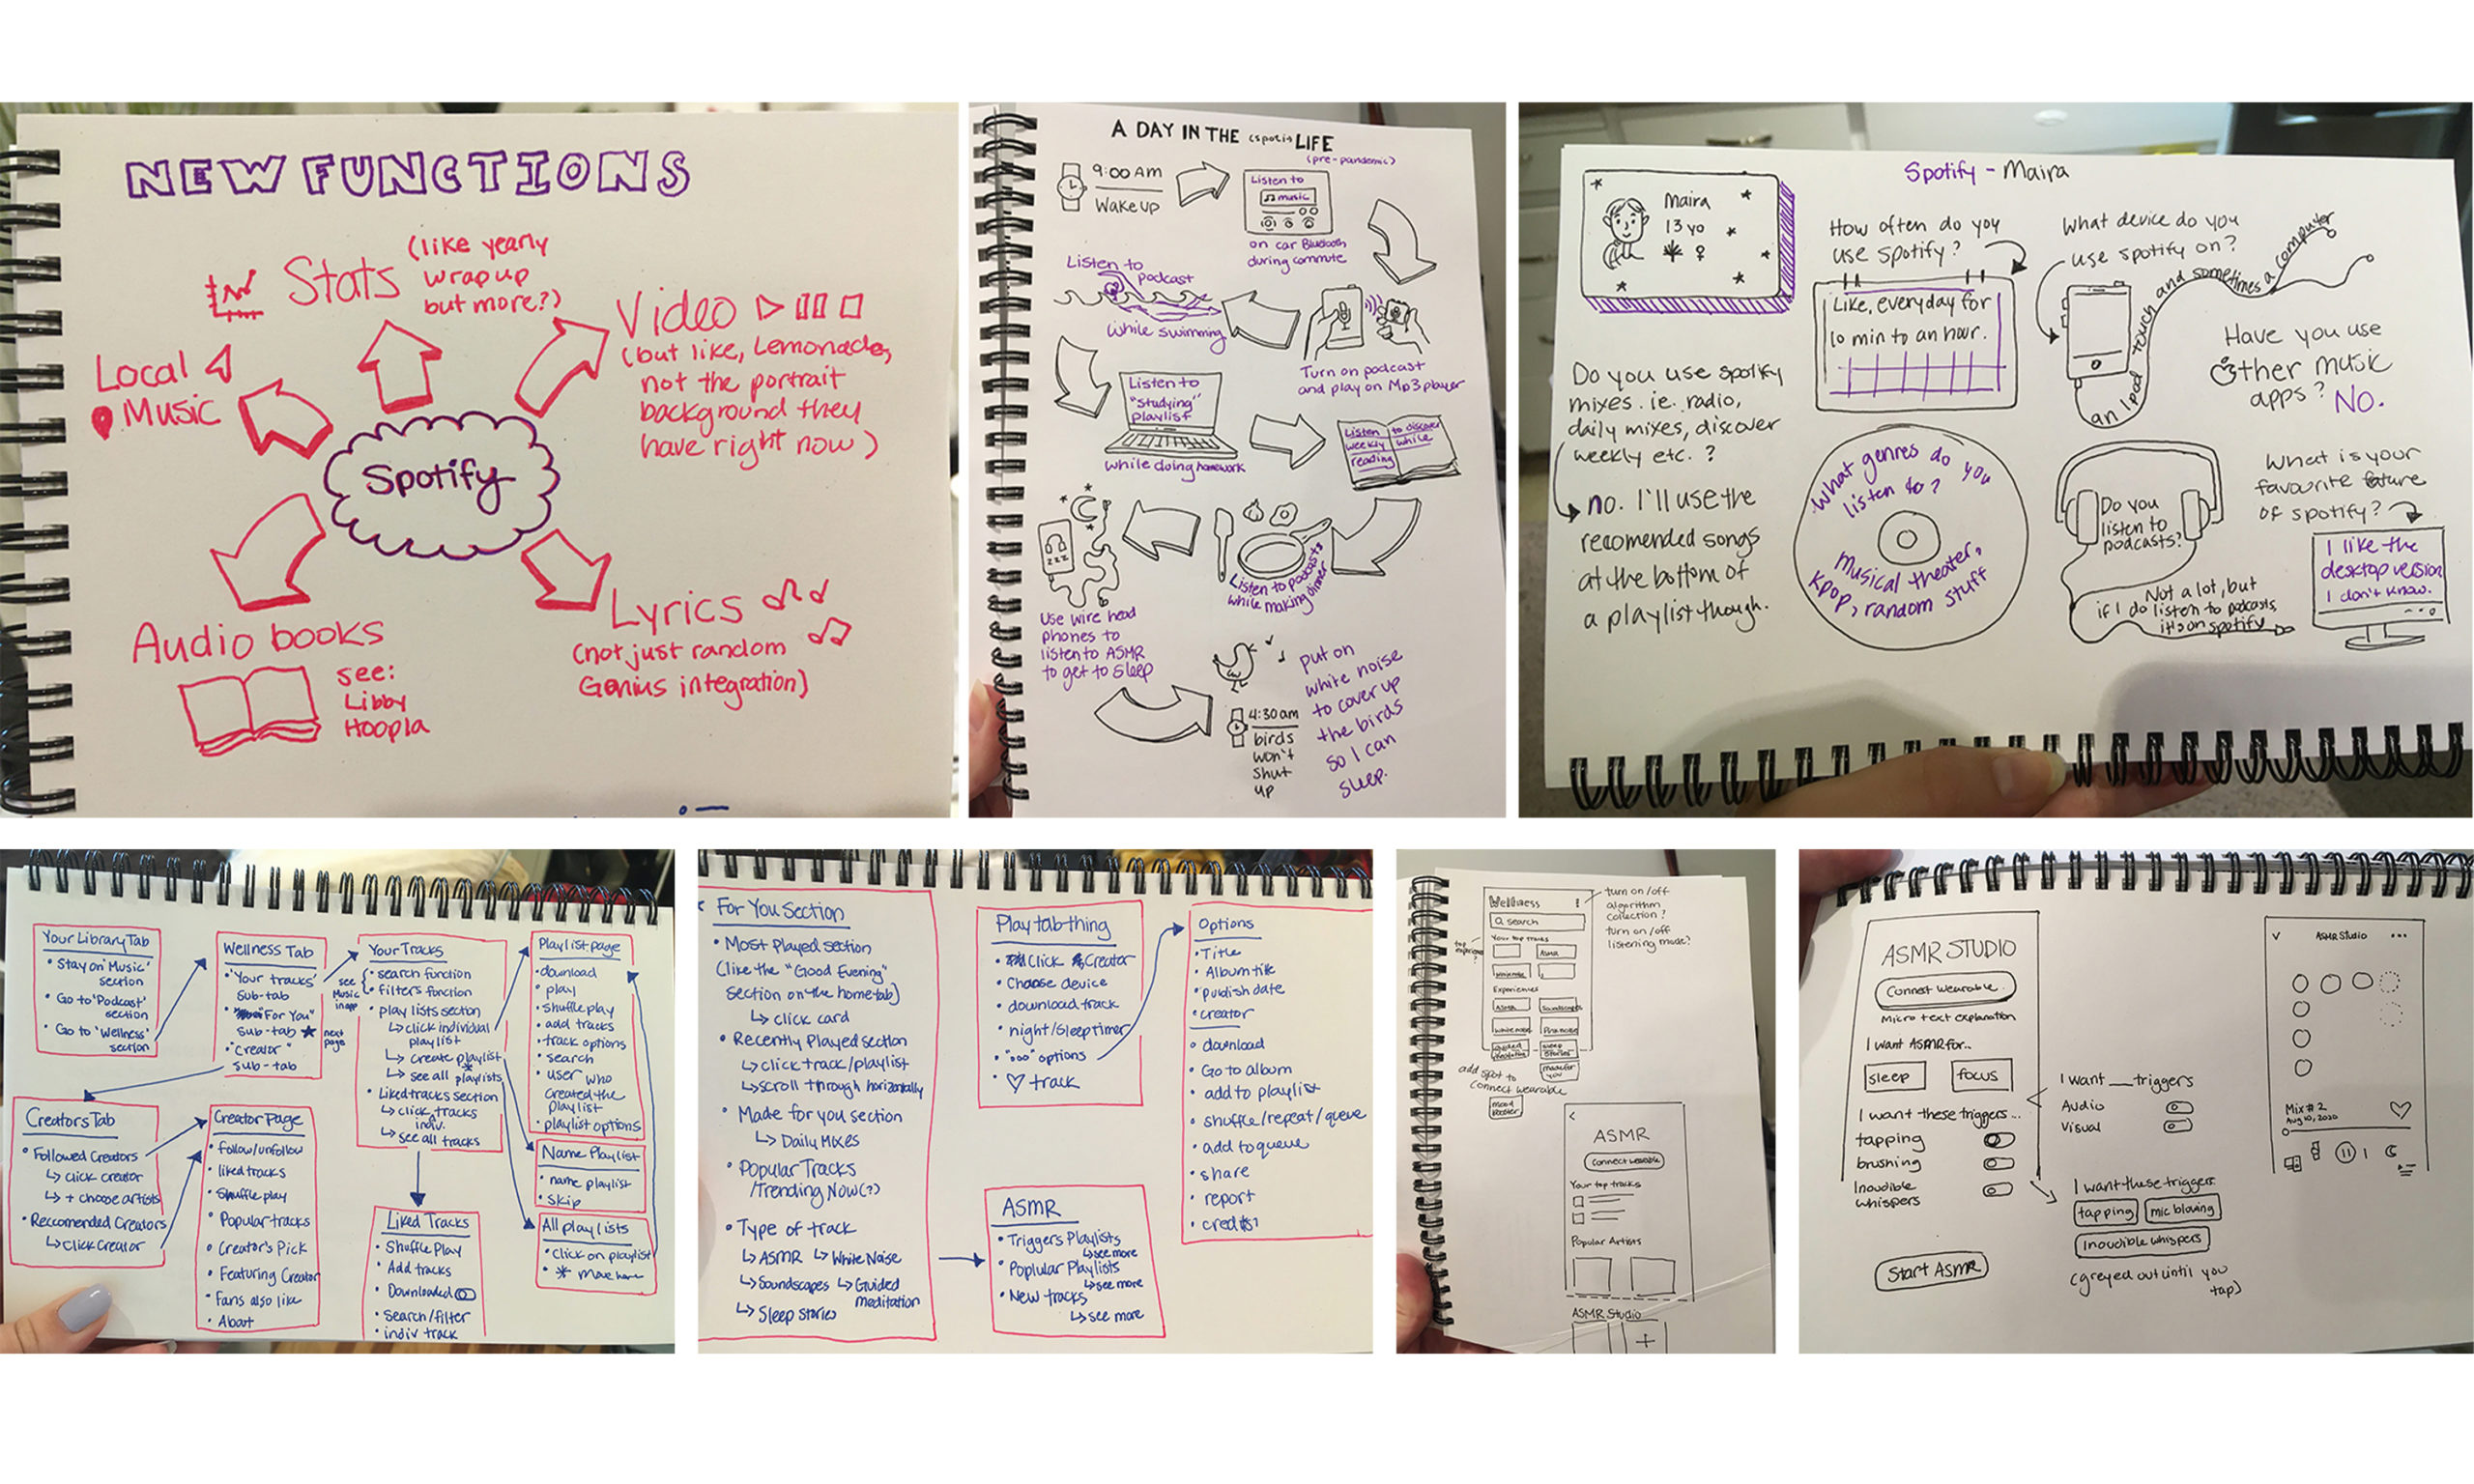 NEW FUNCTIONS
Stats
(like yearly
wrap up
but more?)
Local
Music
Video
(but like, Lemonade,
not the portrait
background they
have right now)
Spotify
Audio books
see:
Libby
Hoopla
Lyrics
(not just random
Genius integration)
A DAY IN THE (spotis LIFE
(pre-pandemic)
9:00 AM
Wake up
Listen to
music
on car Bluetooth
during commute
Turn on podcast
and play on Mp3 player
Listen to
podcast
while swimming
Listen to
"studying"
playlist
while doing homework
Listen to discover
weekly while
reading
Listen to podcasts
while making dinner
Use wire head
phones to
listen to ASMR
to get to sleep
4:30am
birds
won't
shut
up
put on
white noise
to cover up
the birds
so I can
sleep.
Spotify - Maira
Maira
13 yo
How often do you
use spotify?
Like, everyday for
10 min to an hour.
What device do you
use spotify on?
an Ipod touch and sometimes a computer
Have you use
other music
apps? No.
Do you use spotify
mixes. ie. radio,
daily mixes, discover
weekly etc. ?
no. I'll use the
recomended songs
at the bottom of
a playlist though.
What genres do you
listen to?
Musical theater,
Kpop, random stuff
Do you
listen to
podcasts?
Not a lot, but
if I do listen to podcasts,
it's on spotify
What is your
favourite feature
of spotify?
I like the
desktop version
I don't know.
Your Library Tab
• Stay on 'Music'
section
• Go to 'Podcast'
section
• Go to 'Wellness'
section
Wellness Tab
• 'Your tracks'
sub-tab
• "For You"
sub-tab ★
next
page
• "Creator"
sub-tab
Your Tracks
see
Music
in app
• search function
• filters function
• play lists section
↳ click individual
playlist
↳ create playlist
↳ see all playlists
• Liked tracks section
↳ click tracks
indiv.
↳ see all tracks
Playlist page
• download
• play
• shuffle play
• add tracks
• track options
• search
• user who
created the
playlist
• playlist options
Creators Tab
• Followed Creators
↳ click creator
↳ + choose artists
• Reccomended Creators
↳ click creator
Creator Page
• follow/unfollow
• liked tracks
• Shuffle play
• Popular tracks
• Creator's Pick
• Featuring Creator
• Fans also like
• About
Liked Tracks
• Shuffle Play
• Add tracks
• Downloaded
• Search/filter
• indiv track
Name Playlist
• name playlist
• skip
All playlists
• Click on playlist
• * move here
For You Section
• Most Played section
(like the "Good Evening"
section on the home tab)
↳ click card
• Recently Played section
↳ click track/playlist
↳ scroll through horizontally
• Made for you section
↳ Daily Mixes
• Popular Tracks
/Trending Now(?)
• Type of track
↳ ASMR ↳ White Noise
↳ Soundscapes ↳ Guided
meditation
↳ Sleep Stories
Play tab-thing
• Click Creator
• Choose device
• download track
• night/sleep timer
• "ooo" options
• ♡ track
ASMR
• Triggers Playlists
↳ see more
• Poplular Playlists
↳ see more
• New tracks
↳ see more
Options
• Title
• Album title
• publish date
• creator
• download
• Go to album
• add to playlist
• shuffle/repeat/queue
• add to queue
• share
• report
• credits?
Wellness
search
turn on/off
algorithm
collection?
turn on/off
listening mode?
Your top tracks
ASMR
Experiences
ASMR
Soundscapes
White noise
Pink noise
Sleep
Stories
made for
you
add spot to
connect wearable
mood
booster
ASMR
Connect wearable
Your top tracks
Popular Artists
ASMR Studio
+
ASMR STUDIO
Connect wearable
Micro text explanation
I want ASMR for..
sleep
focus
I want these triggers...
tapping
brushing
Inaudible
whispers
Start ASMR
I want ___ triggers
Audio
Visual
I want these triggers
tapping
mic blowing
Inaudible whispers
(greyed out until you
tap)
ASMR Studio
Mix # 2
Aug 10, 2020